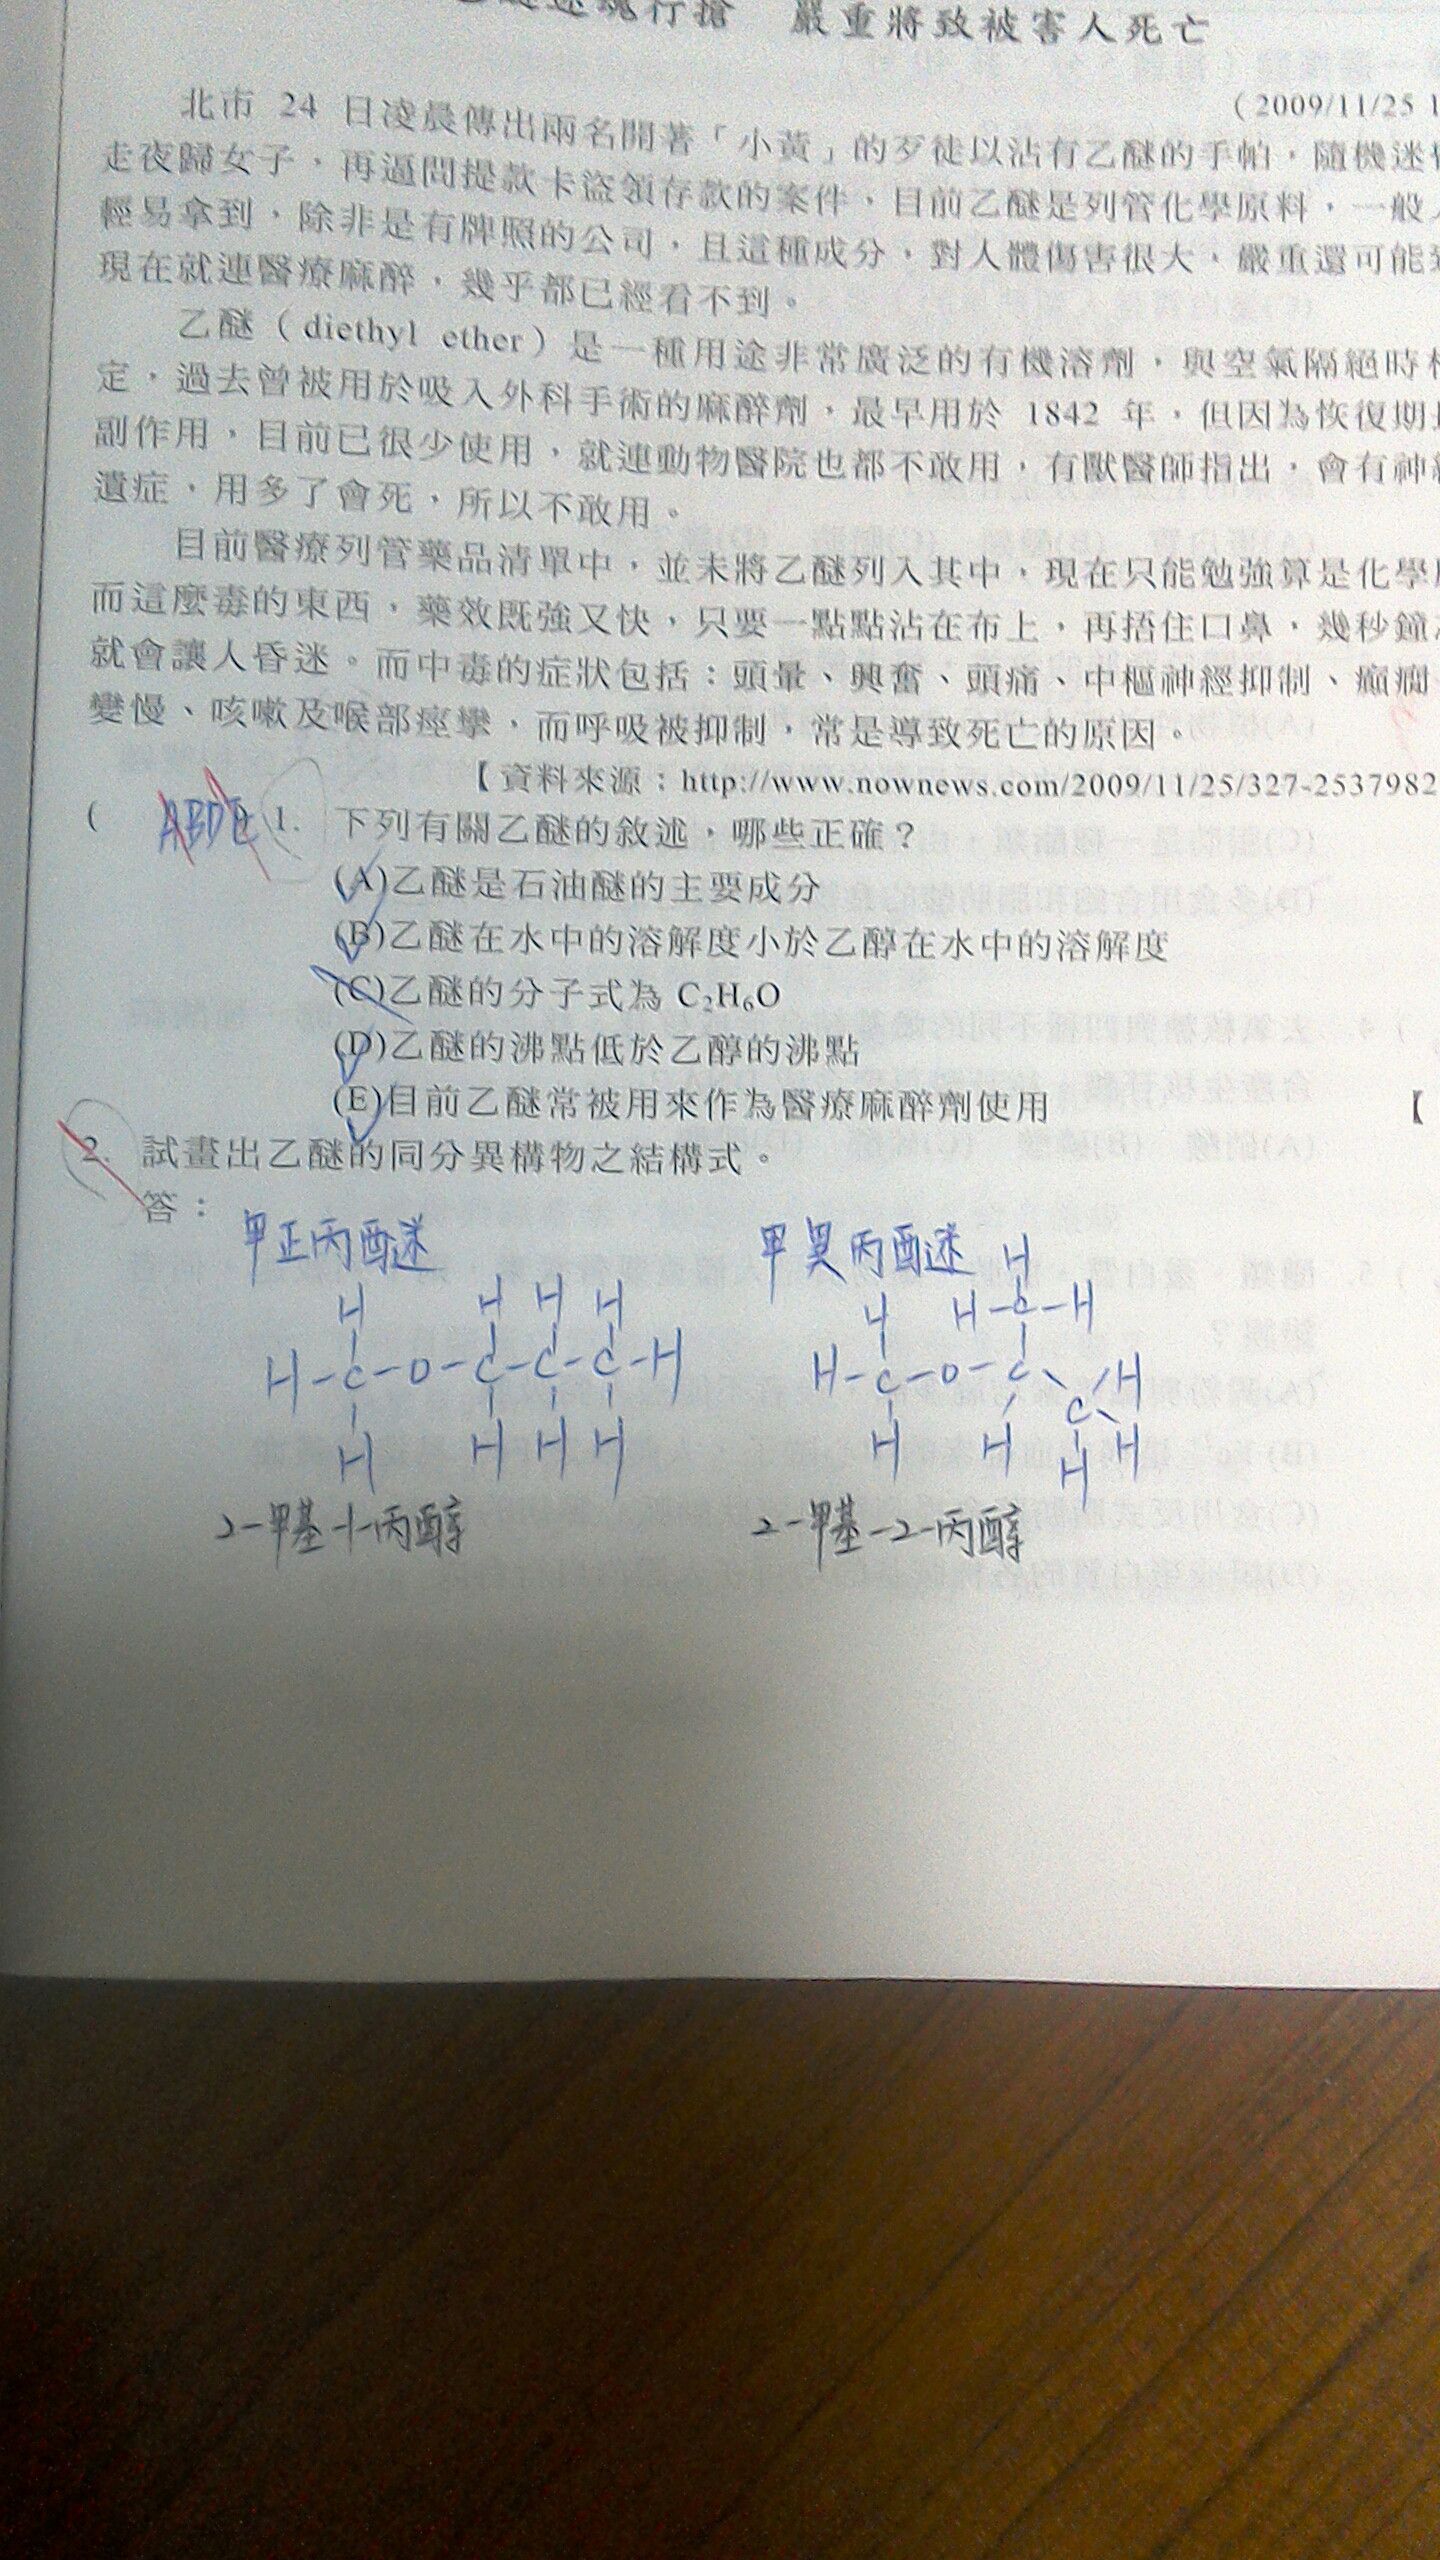 迷魂行搶 嚴重將致被害人死亡
(2009/11/25 1
北市 24 日凌晨傳出兩名開著「小黃」的歹徒以沾有乙醚的手帕，隨機迷
走夜歸女子，再逼問提款卡盜領存款的案件，目前乙醚是列管化學原料，一般
輕易拿到，除非是有牌照的公司，且這種成分，對人體傷害很大，嚴重還可能
現在就連醫療麻醉，幾乎都已經看不到。
乙醚（diethyl ether）是一種用途非常廣泛的有機溶劑，與空氣隔絕時
定，過去曾被用於吸入外科手術的麻醉劑，最早用於 1842 年，但因為恢復期
副作用，目前已很少使用，就連動物醫院也都不敢用，有獸醫師指出，會有神
遺症，用多了會死，所以不敢用。
目前醫療列管藥品清單中，並未將乙醚列入其中，現在只能勉強算是化學
而這麼毒的東西，藥效既強又快，只要一點點沾在布上，再捂住口鼻，幾秒鐘
就會讓人昏迷。而中毒的症狀包括：頭暈、興奮、頭痛、中樞神經抑制、癲癇
變慢、咳嗽及喉部痙攣，而呼吸被抑制，常是導致死亡的原因。
【資料來源：http://www.nownews.com/2009/11/25/327-2537982
( ABDE ) 1. 下列有關乙醚的敘述，哪些正確？
(A)乙醚是石油醚的主要成分
(B)乙醚在水中的溶解度小於乙醇在水中的溶解度
(C)乙醚的分子式為 C₂H₆O
(D)乙醚的沸點低於乙醇的沸點
(E)目前乙醚常被用來作為醫療麻醉劑使用
【
2. 試畫出乙醚的同分異構物之結構式。
答：
甲正丙醚 甲異丙醚
H H H H H H H-C-H
H-C-O-C-C-C-H H-C-O-C C H
H H H H H H H H
2-甲基-1-丙醇 2-甲基-2-丙醇